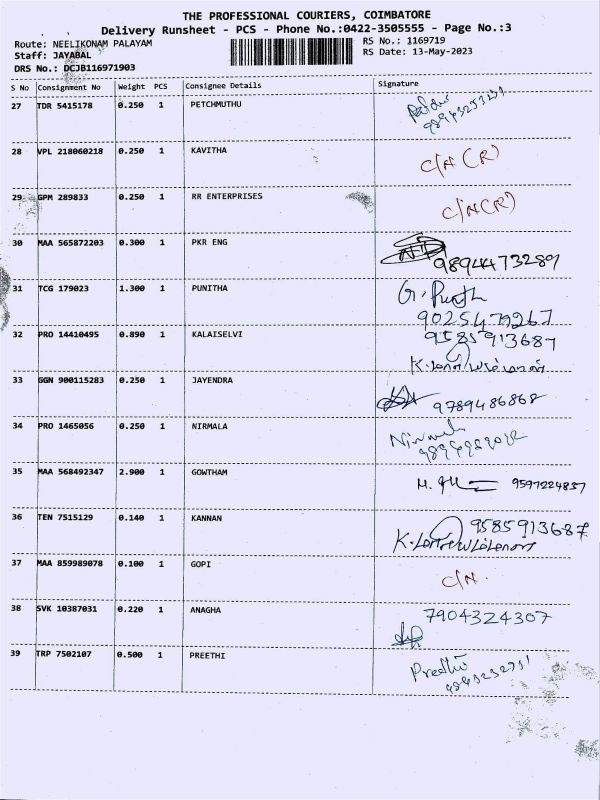 THE PROFESSIONAL COURIERS, COIMBATORE
Delivery Runsheet - PCS - Phone No.:0422-3505555 - Page No.:3
Route: NEELIKONAM PALAYAM
RS No.: 1169719
Staff: JAYABAL
RS Date: 13-May-2023
DRS No.: DCJB116971903
S No Consignment No Weight PCS Consignee Details Signature
27 TDR 5415178 0.250 1 PETCHMUTHU
28 VPL 218060218 0.250 1 KAVITHA C/N (R)
29 GPM 289833 0.250 1 RR ENTERPRISES C/N (R)
30 MAA 565872203 0.300 1 PKR ENG 9894473289
31 TCG 179023 1.300 1 PUNITHA G.
9025479267
32 PRO 14410495 0.890 1 KALAISELVI 9585913687
33 GGN 900115283 0.250 1 JAYENDRA 9789486868
34 PRO 1465056 0.250 1 NIRMALA Nirmala
35 MAA 568492347 2.900 1 GOWTHAM M. 9597224857
36 TEN 7515129 0.140 1 KANNAN 9585913687
37 MAA 859989078 0.100 1 GOPI C/N
38 SVK 10387031 0.220 1 ANAGHA 7904324307
39 TRP 7502107 0.500 1 PREETHI Preethi